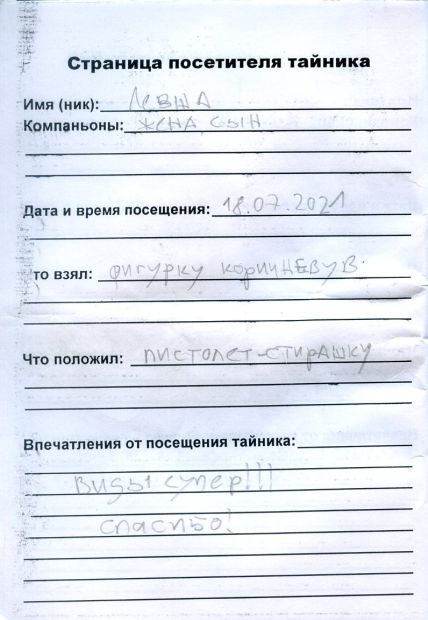 Страница посетителя тайника
Имя (ник): ЛЕВША
Компаньоны: ЖЕНА, СЫН
Дата и время посещения: 18.07.2021
то взял: ФИГУРКУ КОРИЧНЕВУВ
Что положил: ПИСТОЛЕТ-СТИРАШКУ
Впечатления от посещения тайника:
ВИДЫ СУПЕР!!!
СПАСИБО!